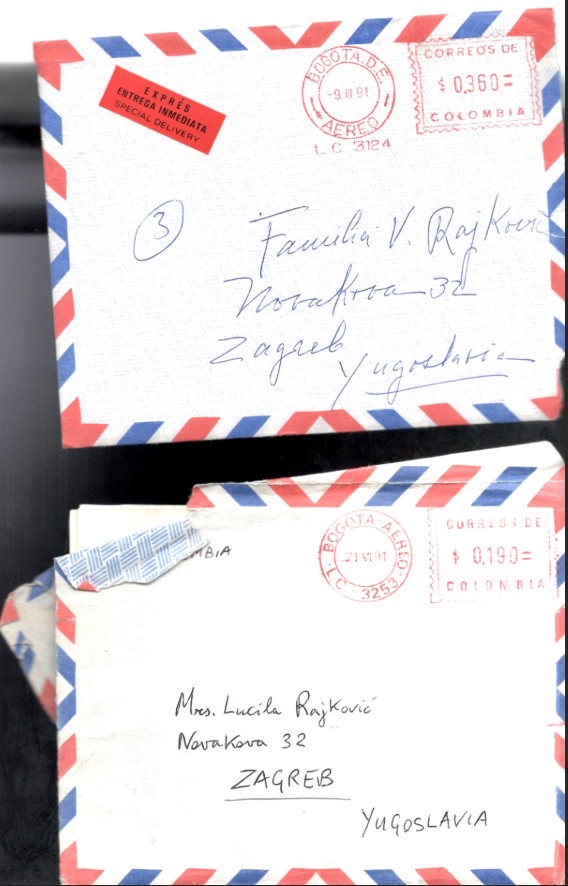 EXPRÉS
ENTREGA INMEDIATA
SPECIAL DELIVERY
BOGOTA.D.E
-9.III.91
AEREO
L.C. 3124
CORREOS DE
$ 0,360=
COLOMBIA
3
Familia V. Rajković
Novakova 32
Zagreb
Yugoslavia
MBIA
BOGOTA-AEREO
21.VI.91
L.C. 3253
CORREOS DE
$ 0,190=
COLOMBIA
Mrs. Lucila Rajković
Novakova 32
ZAGREB
YUGOSLAVIA